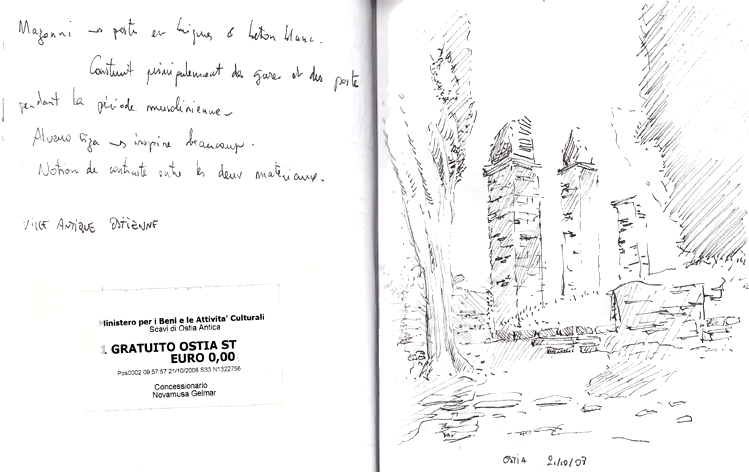 Mazonni → poste en briques & béton blanc.
Construit principalement des gares et des poste
pendant la période mussolinienne
Alvaro Siza → inspire beaucoup.
Notion de contraste entre les deux matériaux.
VILLE ANTIQUE OSTIENNE
Ministero per i Beni e le Attivita' Culturali
Scavi di Ostia Antica
1 GRATUITO OSTIA ST
EURO 0,00
Pos0002 09 57 57 21/10/2006 S33 N1322756
Concessionario
Novamusa Gelmar
OSTIA 21/10/07